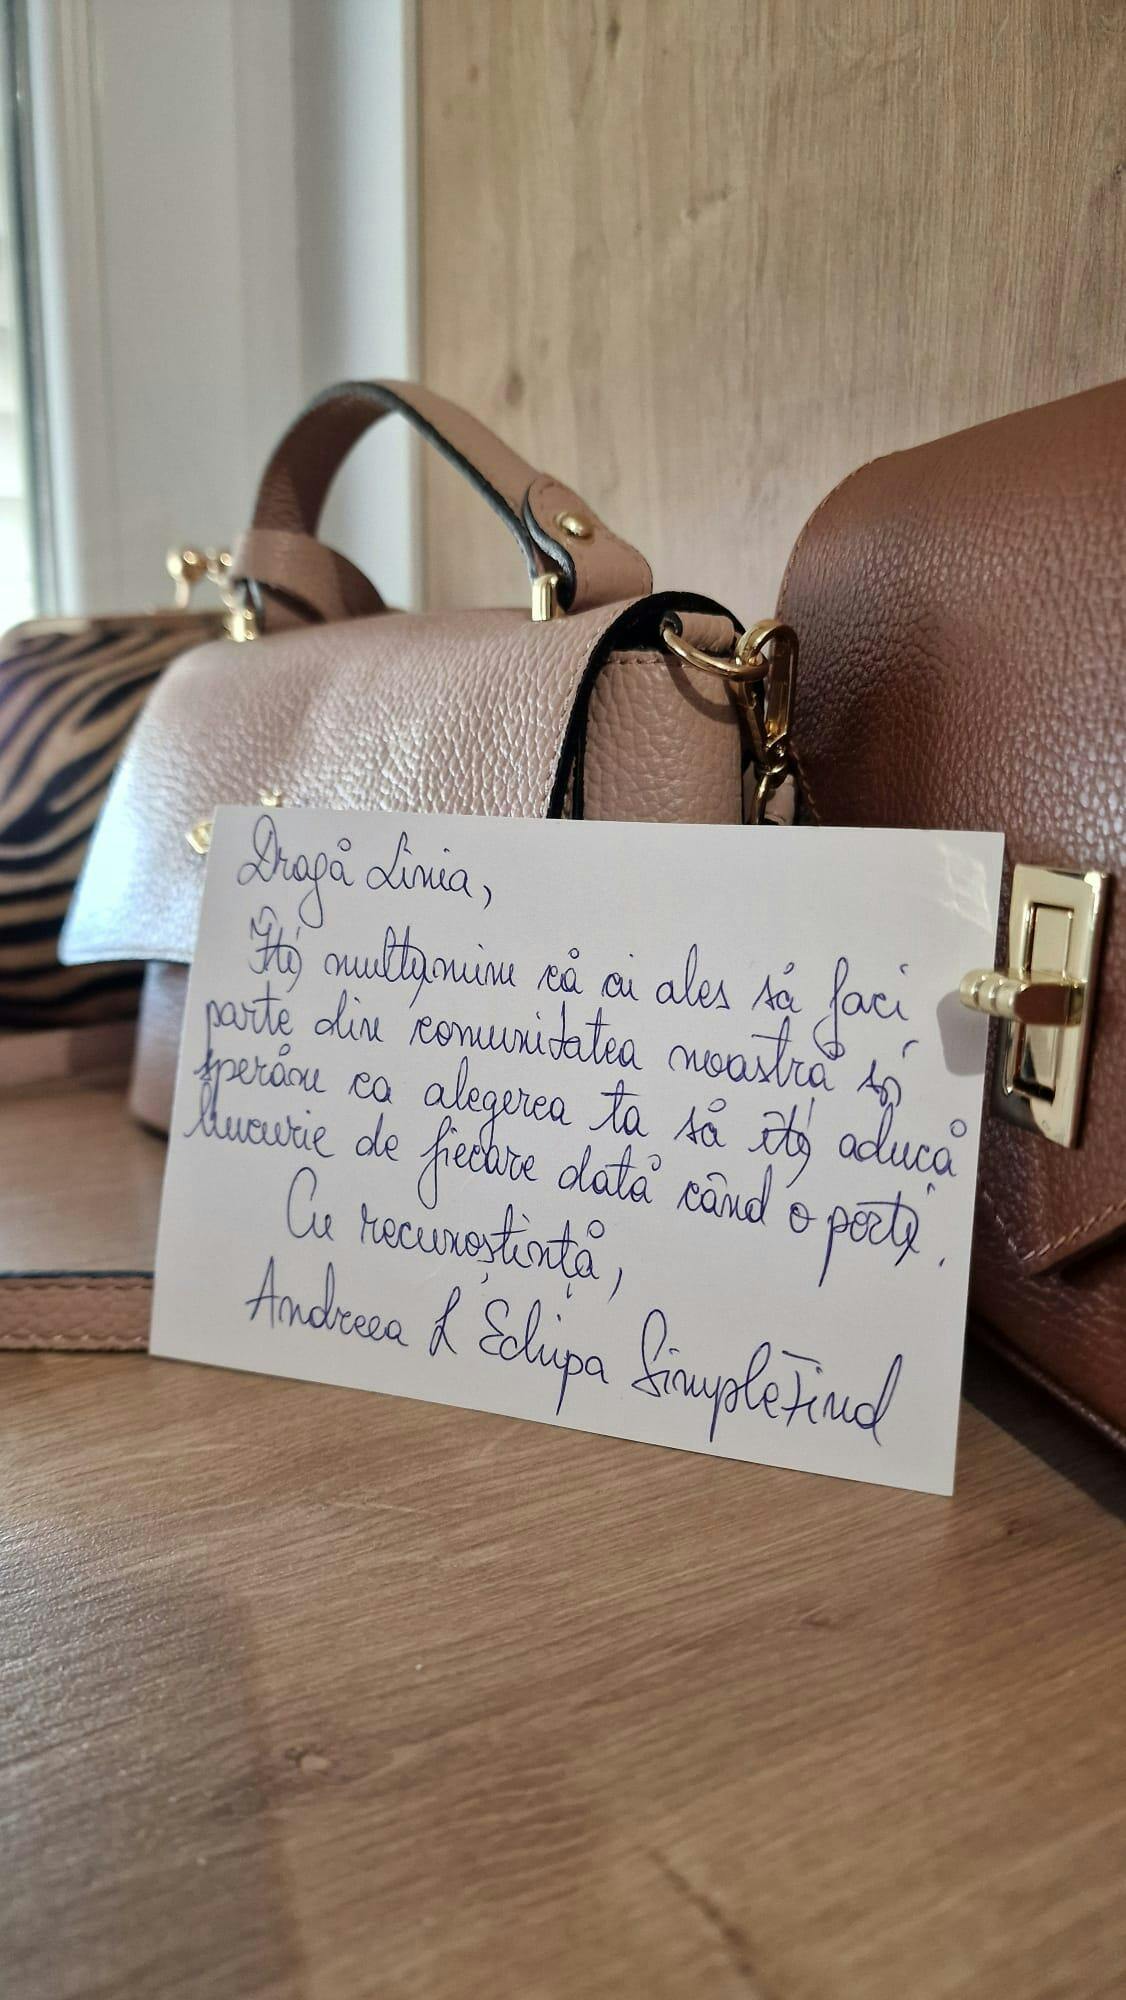 Dragă Livia,
Îți mulțumim că ai ales să faci
parte din comunitatea noastră și
sperăm ca alegerea ta să îți aducă
bucurie de fiecare dată când o porți.
Cu recunoștință,
Andreea & Echipa SimpleFind